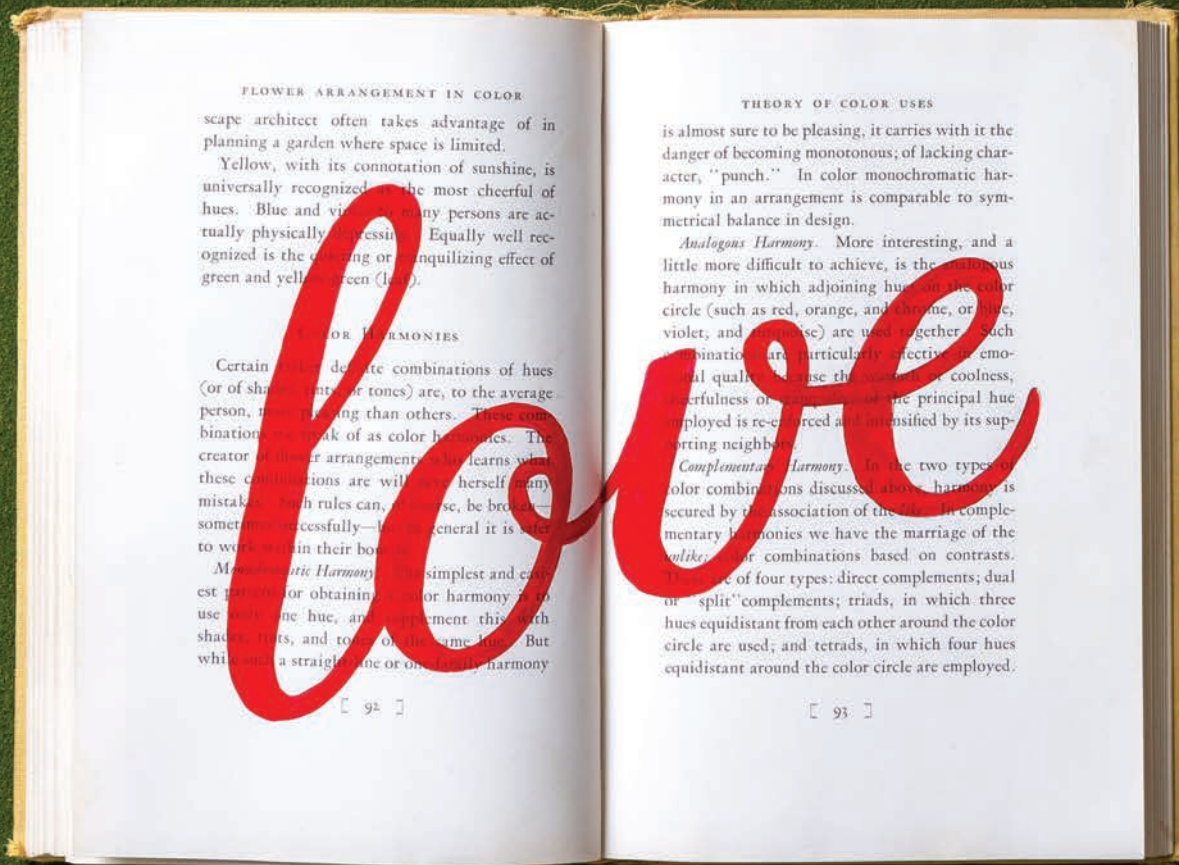 FLOWER ARRANGEMENT IN COLOR
scape architect often takes advantage of in
planning a garden where space is limited.
Yellow, with its connotation of sunshine, is
universally recognized as the most cheerful of
hues. Blue and violet to many persons are ac-
tually physically depressing. Equally well rec-
ognized is the or tranquilizing effect of
green and yellow-green (leaf).
COLOR HARMONIES
Certain rather definite combinations of hues
(or of shades, tints, or tones) are, to the average
person, more pleasing than others. These com-
binations we speak of as color harmonies. The
creator of flower arrangements who learns what
these combinations are will save herself many
mistakes. Such rules can, of course, be broken—
sometimes successfully—but in general it is safer
to work within their bounds.
Monochromatic Harmony. The simplest and easi-
est pattern for obtaining color harmony is to
use only one hue, and supplement this with
shades, tints, and tones of the same hue. But
while such a straight-line or one-family harmony
[ 92 ]
THEORY OF COLOR USES
is almost sure to be pleasing, it carries with it the
danger of becoming monotonous; of lacking char-
acter, "punch." In color monochromatic har-
mony in an arrangement is comparable to sym-
metrical balance in design.
Analogous Harmony. More interesting, and a
little more difficult to achieve, is the analogous
harmony in which adjoining hues on the color
circle (such as red, orange, and chrome, or blue,
violet, and turquoise) are used together. Such
combinations are particularly effective in emo-
tional quality because the warmth or coolness,
cheerfulness or tranquility of the principal hue
employed is re-enforced and intensified by its sup-
porting neighbors.
Complementary Harmony. In the two types of
color combinations discussed above, harmony is
secured by the association of the like. In comple-
mentary harmonies we have the marriage of the
unlike; color combinations based on contrasts.
These are of four types: direct complements; dual
or "split" complements; triads, in which three
hues equidistant from each other around the color
circle are used; and tetrads, in which four hues
equidistant around the color circle are employed.
[ 93 ]
love